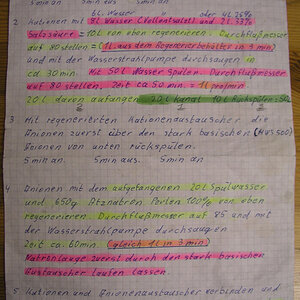 5min an 5min aus. 5min an
4L Wasser oder 4L 25%
2 Kationen mit 8L Wasser (Vollentsalzt) und 2L 33%
Salzsäure = 10L von oben regenerieren. Durchflußmesser
auf 80 stellen = (1L aus dem Regenerierbehälter in 3 min)
und mit der Wasserstrahlpumpe durchsaugen in
ca 30min Mit 50L Wasser Spülen Durchflußmesser
auf 80 stellen, Zeit ca 50min = 1L pro/min
20L davon auffangen 20L Kanal 10L Rückspülen
3 Mit regenerierten Kationenaustauscher die
Anionen zuerst über den stark basischen (MWS500)
Anionen von unten rückspülen.
5min an. 5min aus. 5min an
4 Anionen mit dem aufgefangenen 20L Spülwasser
und 650g Ätznatron Perlen 100% von oben
regenerieren. Durchflußmesser auf 85 und mit
der Wasserstrahlpumpe durchsaugen
Zeit ca. 60min. (gleich 1L in 3min)
Natronlauge zuerst durch den stark basischen
Austauscher laufen lassen.
5 Kationen und Anionenaustauscher verbinden und